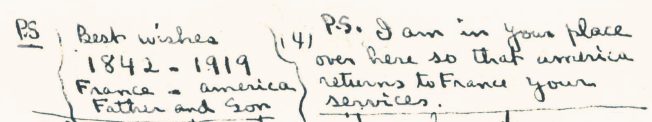 PS
Best wishes
1842 - 1919
France - america
Father and Son
(4) P.S. I am in your place
over here so that america
returns to France your
services.